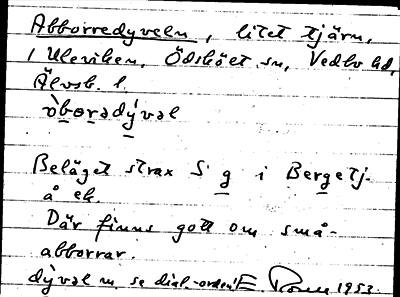 Abborredyveln, litet tjärn,
i Uleviken, Ödskölt sn, Vedbo hd,
Älvsb. l.
òbora dývəl
Beläget strax S g i Bergetj-
å ek.
Där finns gott om små-
abborrar.
dývəl m, se dial.-orden! E 1953